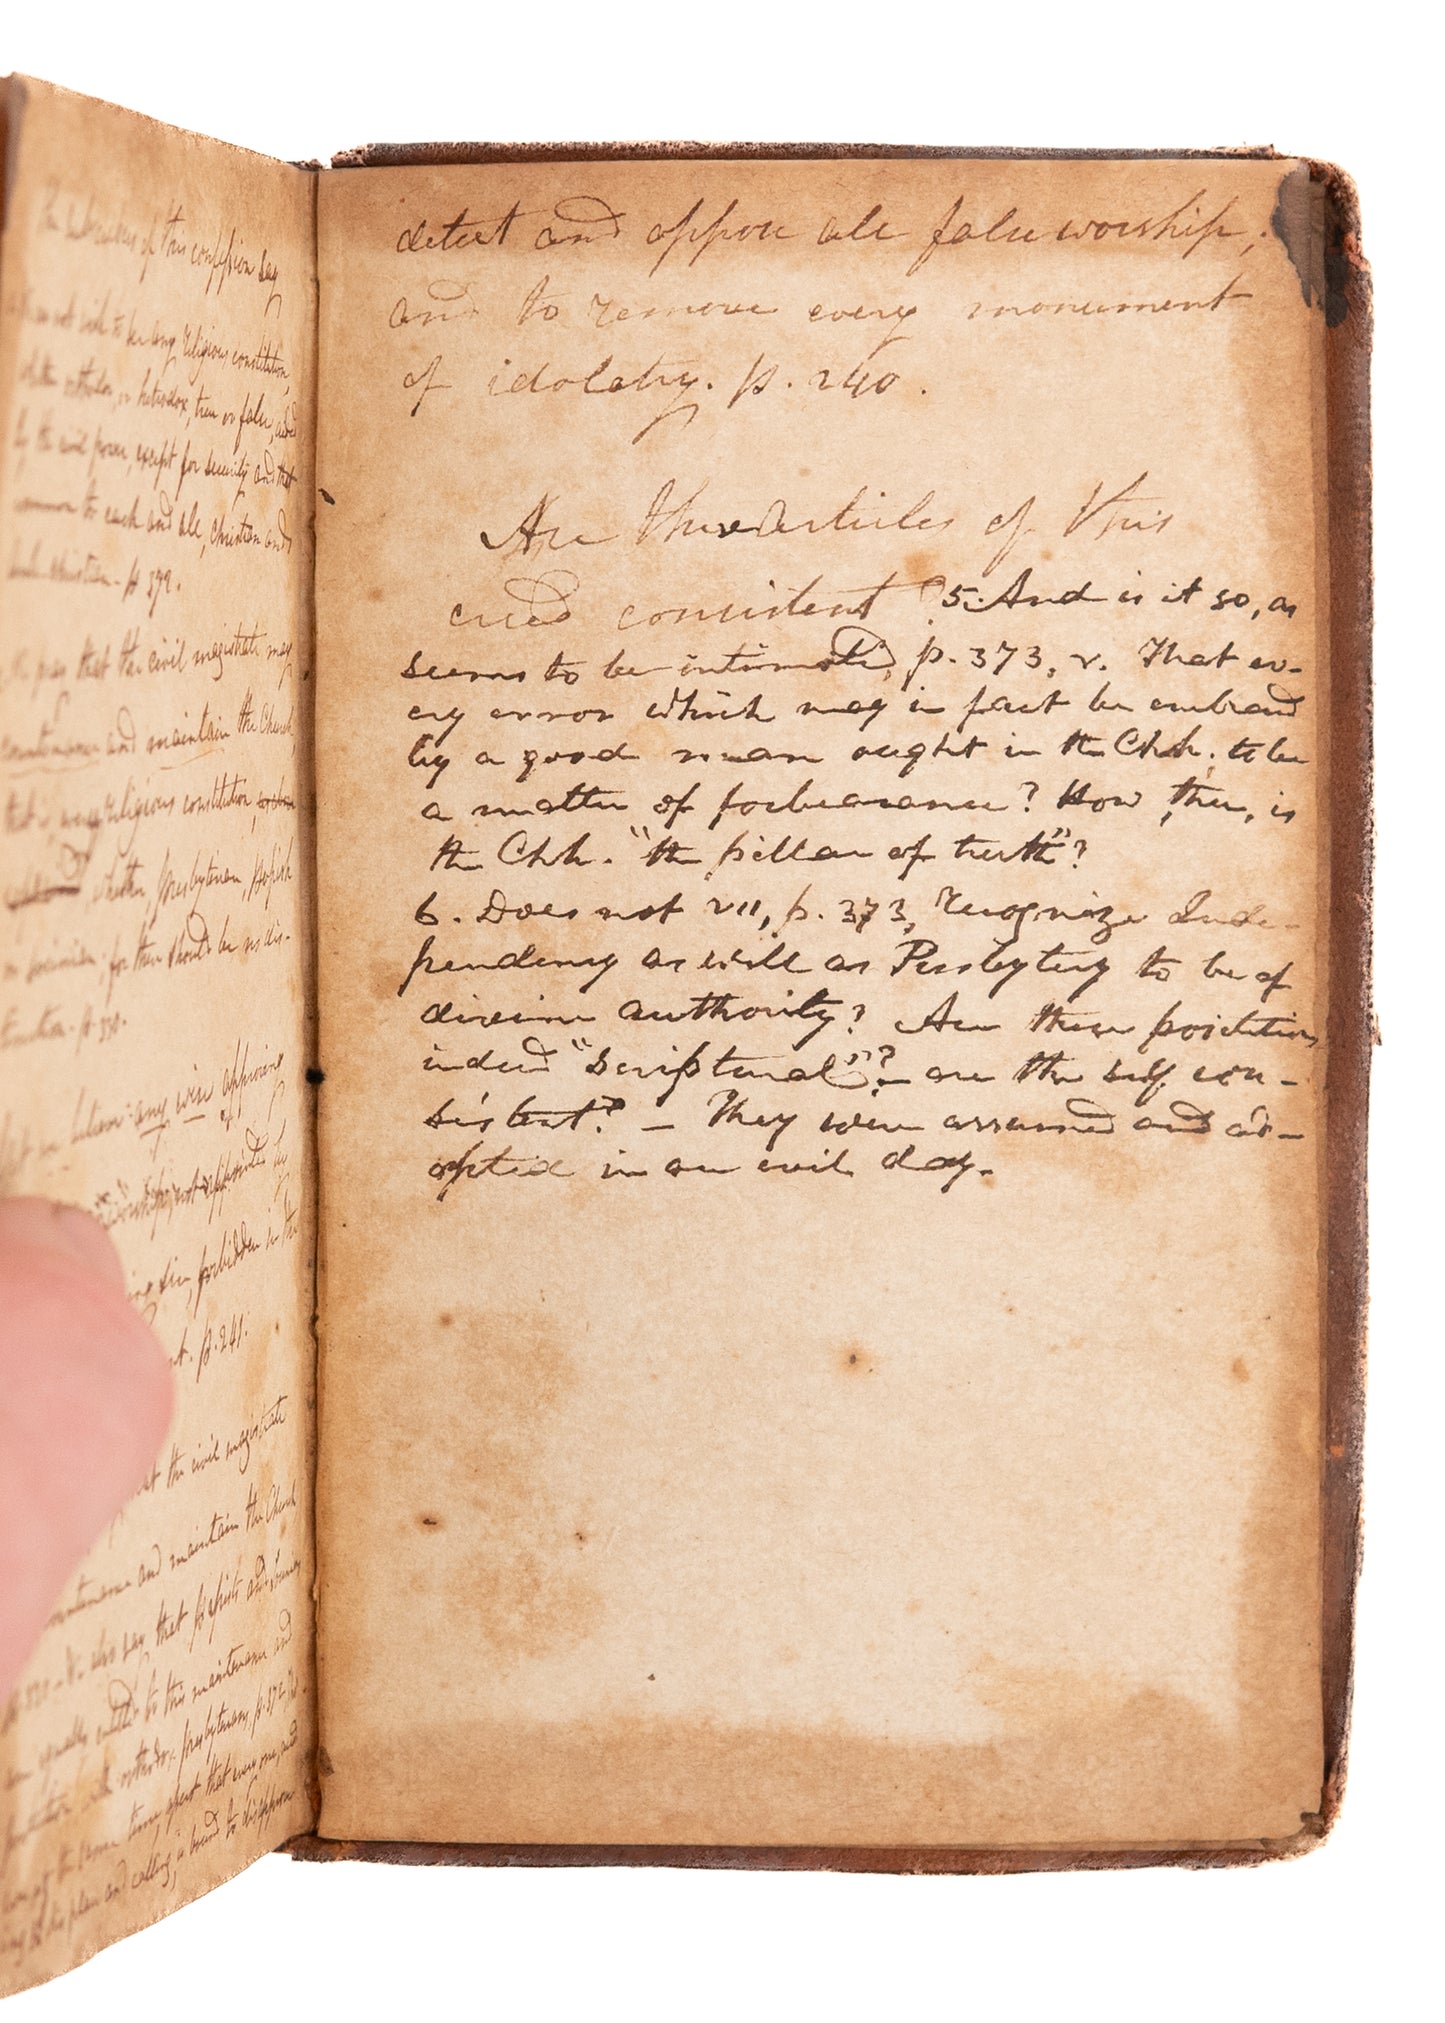 The subscribers of this confession say
not wish to see any religious constitution,
orthodox, or heterodox, true or false, aided
by the civil power, except for security and that
common to each and all, Christian and
p 372.
that the civil magistrate may
countenance and maintain the Church,
that is, any religious constitution,
whether, presbyterian, popish
or socinian; for there should be no dis-
tinction. p.
any wise approving
of
worship, not appointed by
sin, forbidden in the
p. 241.
the civil magistrate
countenance and maintain the Church
also say that papists and
are equally entitled to this maintenance and
with orthodox presbyterians, p. 372.
at the same time, assert that every one,
to his place and calling, is bound to disapprove
detest and oppose all false worship;
and to remove every monument
of idolatry. p. 240.
Are these articles of this
creed consistent? 5. And is it so, as
seems to be intimated, p. 373, v. That ev-
ery error which may in fact be embraced
by a good man ought in the Chh. to be
a matter of forbearance? How, then, is
the Chh. "the pillar of truth"?
6. Does not VII, p. 373, recognize Inde-
pendency as well as Presbytery to be of
divine authority? Are these positions
indeed "scriptural"? — are they self con-
sistent? — They were assumed and ad-
opted in an evil day.